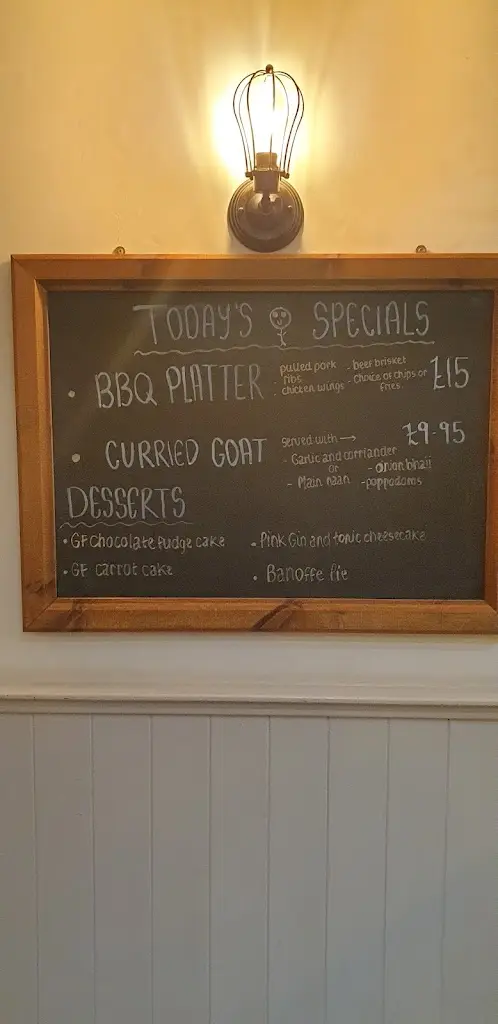 TODAY'S SPECIALS
• BBQ PLATTER
pulled pork - beef brisket
ribs - choice of chips or
chicken wings fries.
£15
• CURRIED GOAT
served with →
- Garlic and corriander
or - onion bhaji
- Plain naan - poppodoms
£9-95
DESSERTS
• GF chocolate fudge cake - Pink Gin and tonic cheesecake
• GF carrot cake • Banoffe Pie